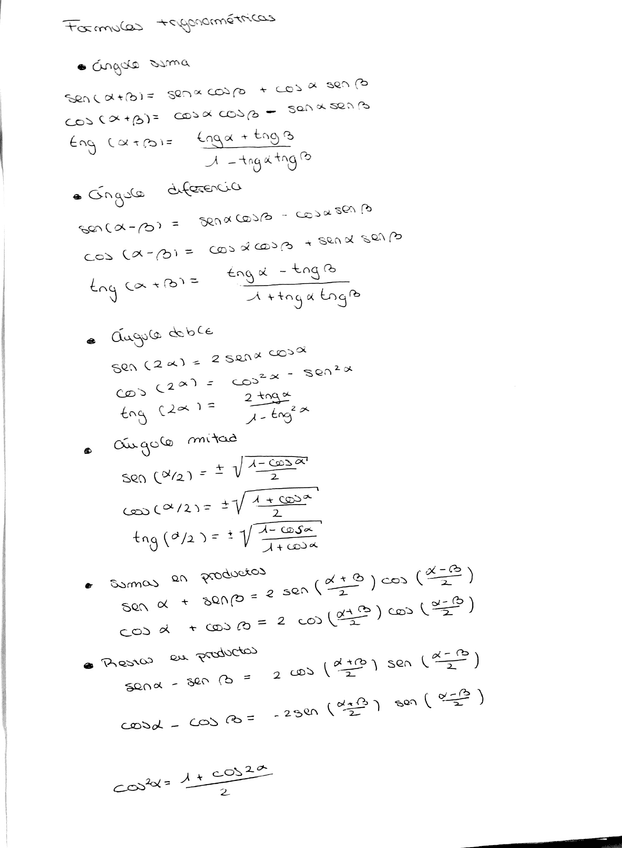 Formulas trigonométricas
• ángulo suma
sen(α+β)= senα cosβ + cosα senβ
cos(α+β)= cosα cosβ - senα senβ
tng (α+β)= (tngα + tngβ)/(1 - tngα tngβ)
• ángulo diferencia
sen(α-β) = senα cosβ - cosα senβ
cos (α-β) = cosα cosβ + senα senβ
tng (α+β) = (tngα - tngβ)/(1 + tngα tngβ)
• ángulo doble
sen (2α) = 2 senα cosα
cos (2α) = cos²α - sen²α
tng (2α) = 2 tngα/(1 - tng²α)
• ángulo mitad
sen (α/2) = ± √((1 - cosα)/2)
cos (α/2) = ± √((1 + cosα)/2)
tng (α/2) = ± √((1 - cosα)/(1 + cosα))
• Sumas en productos
sen α + senβ = 2 sen ((α+β)/2) cos ((α-β)/2)
cos α + cos β = 2 cos ((α+β)/2) cos ((α-β)/2)
• Restas en productos
senα - sen β = 2 cos ((α+β)/2) sen ((α-β)/2)
cosα - cos β = -2sen ((α+β)/2) sen ((α-β)/2)
cos²α = (1 + cos2α)/2